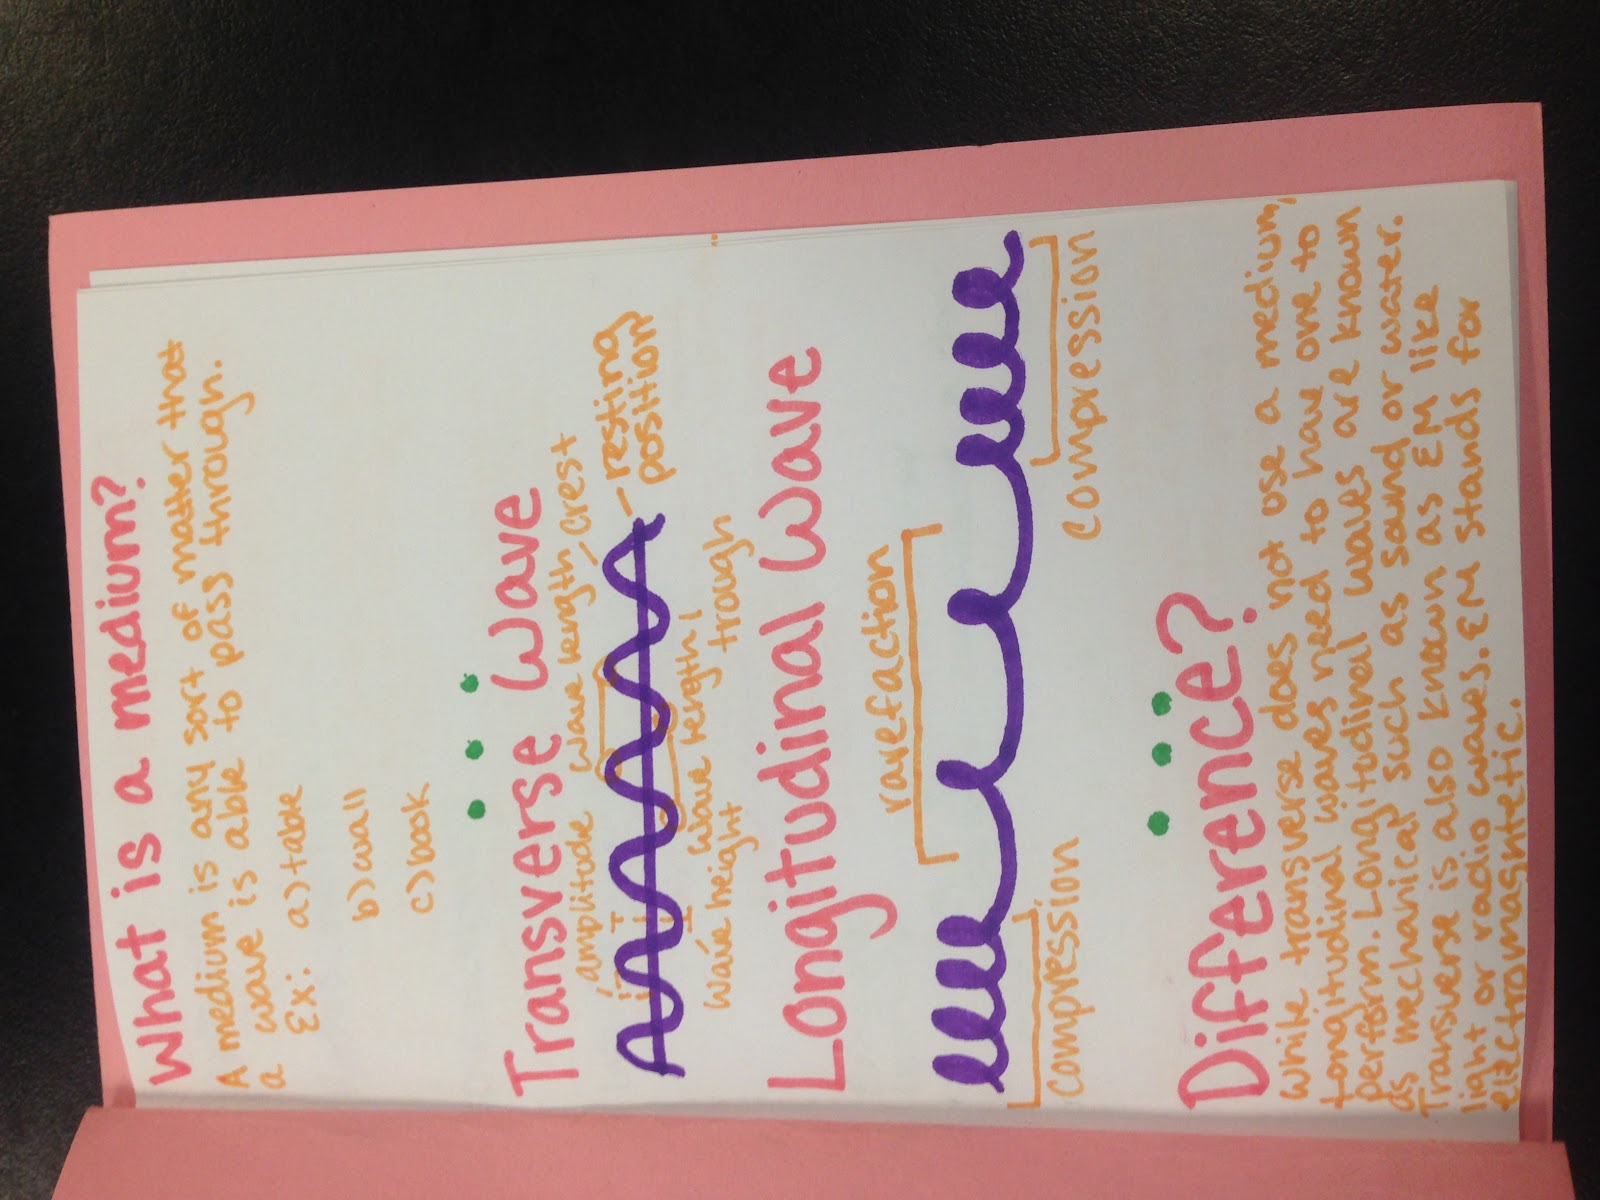 What is a medium?
A medium is any sort of matter that
a wave is able to pass through.
Ex: a) table
b) wall
c) book
Transverse Wave
amplitude wave length crest
resting
position
wave height wave length trough
Longitudinal Wave
rarefaction
compression compression
Difference?
While transverse does not use a medium,
longitudinal waves need to have one to
perform. Longitudinal waves are known
as mechanical such as sound or water.
Transverse is also known as EM like
light or radio waves. EM stands for
electromagnetic.